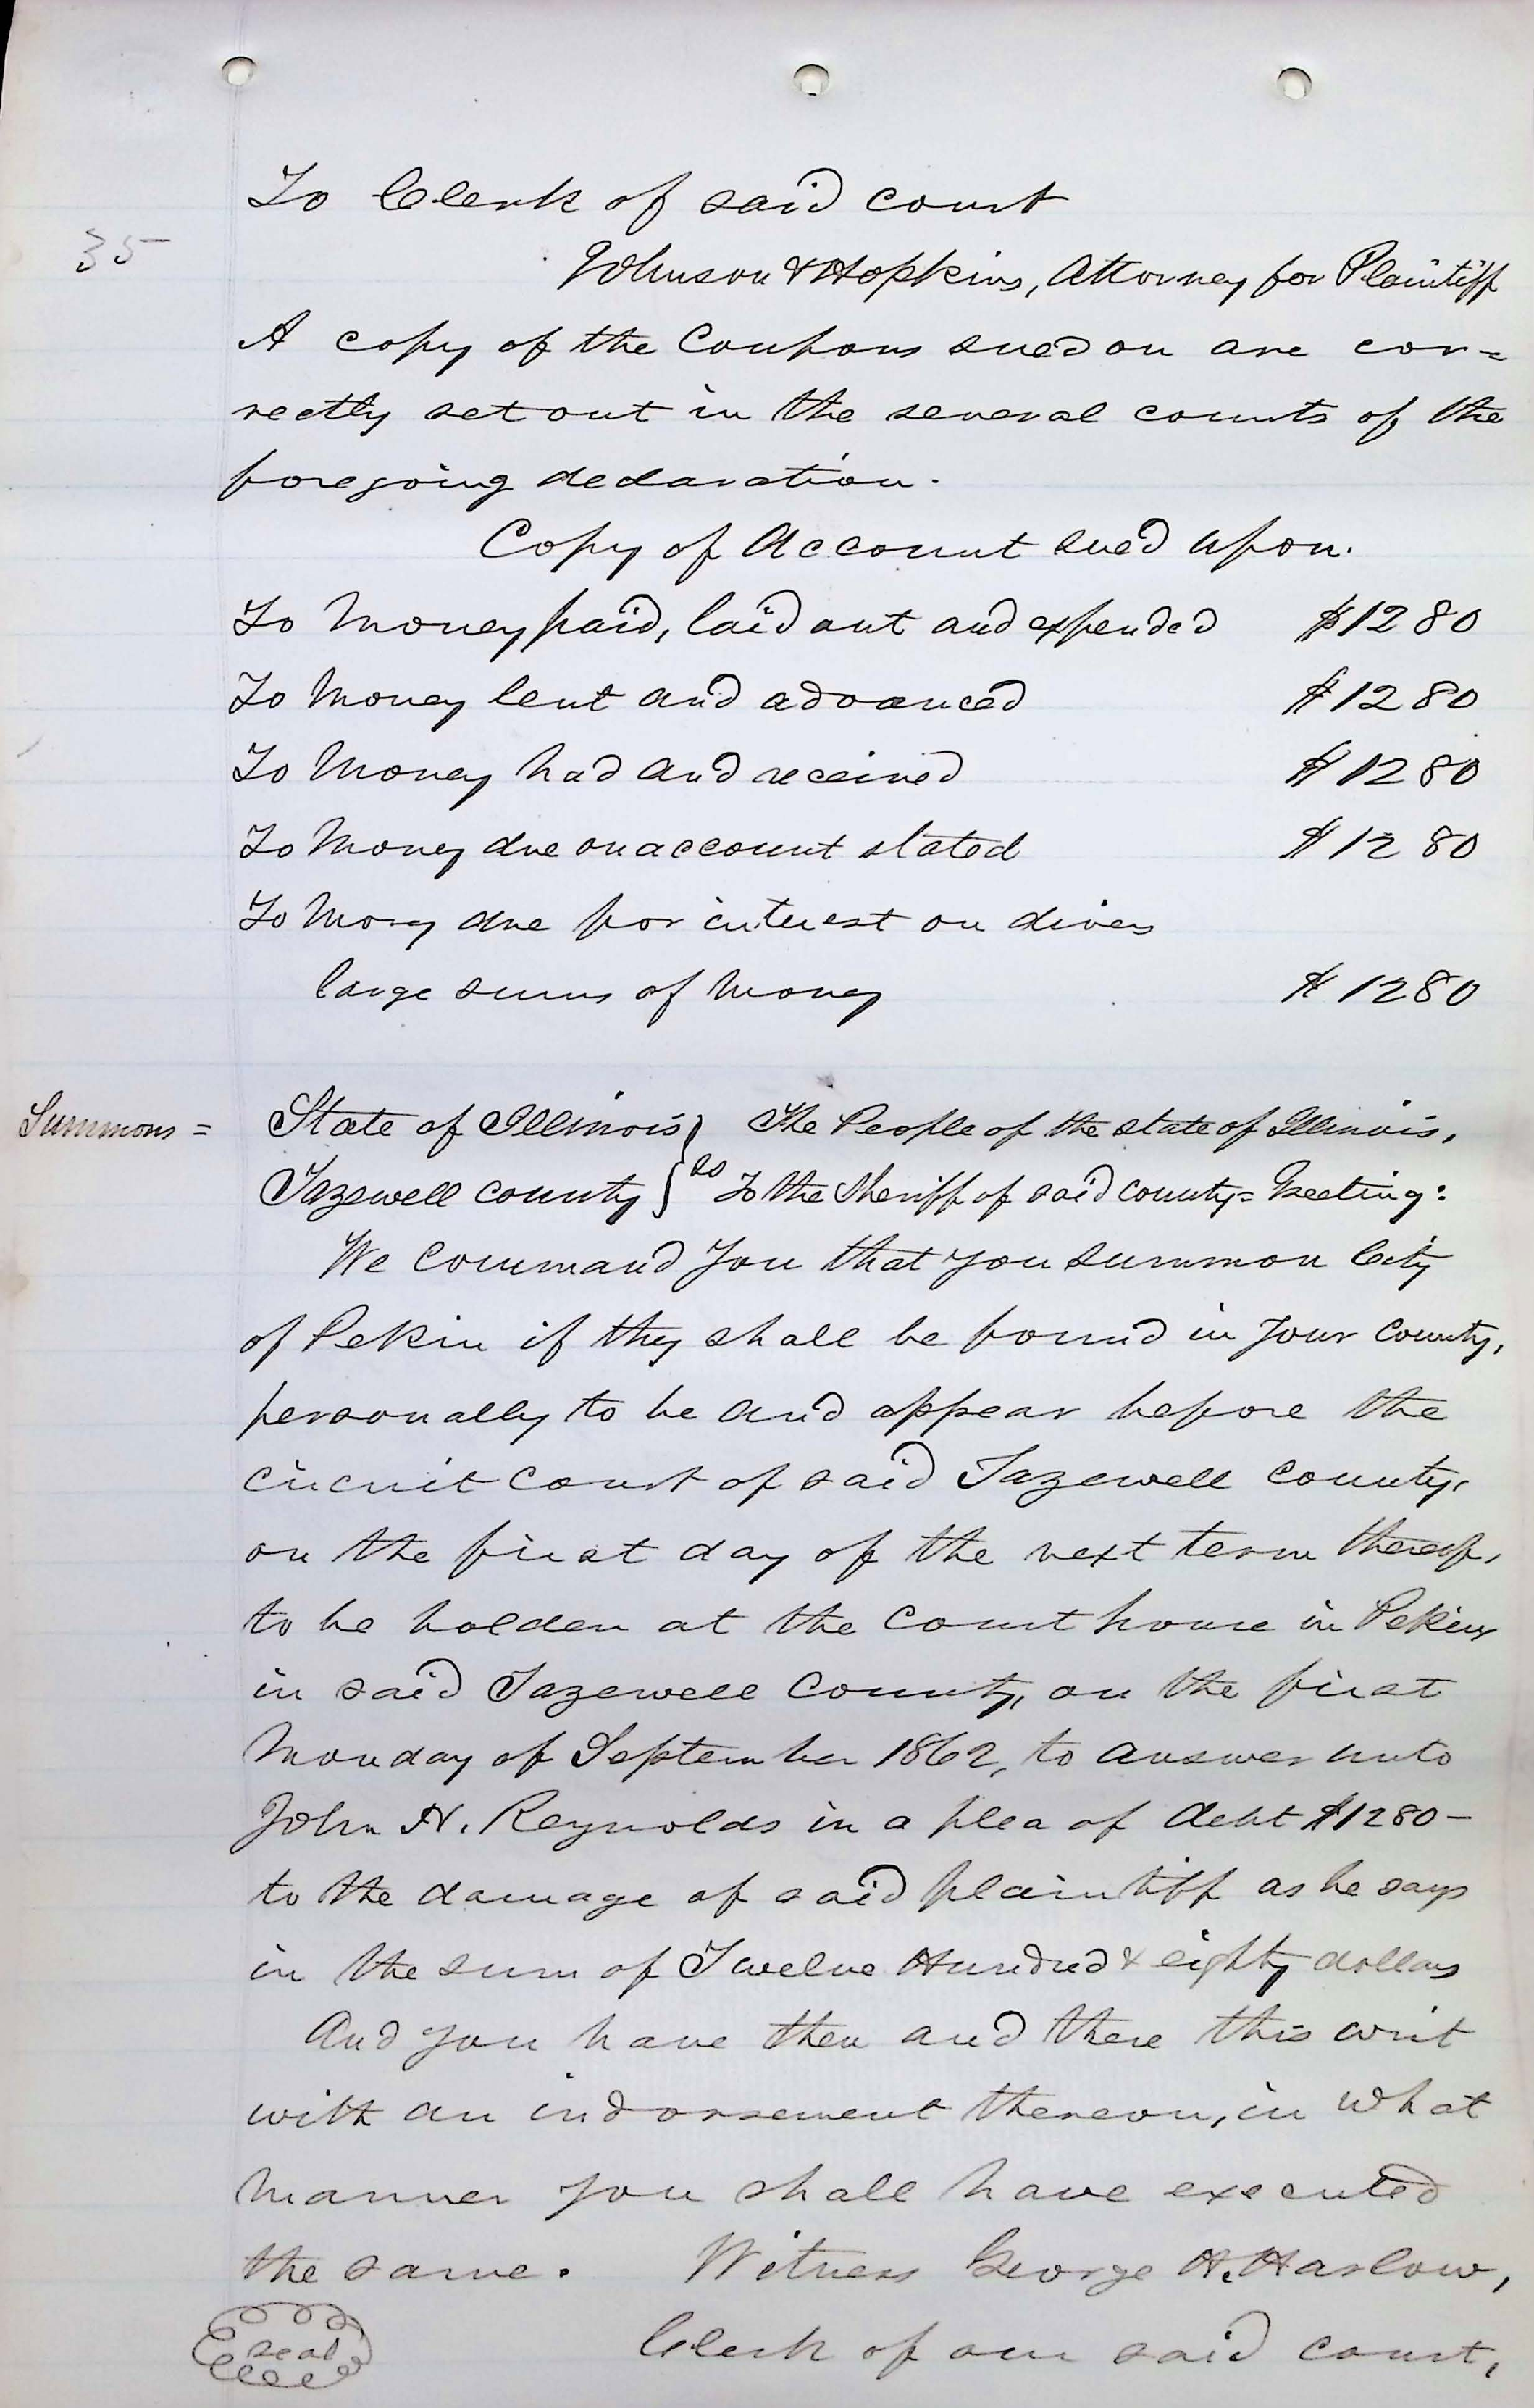 To Clerk of said court
35
Johnson & Hopkins, Attorney for Plaintiff
A copy of the Coupons sued on are cor=
rectly set out in the several counts of the
foregoing declaration.
Copy of Account sued upon.
To Money paid, laid out and expended $1280
To Money lent and advanced $1280
To Money had and received $1280
To Money due on account stated $1280
To Mony due for interest on divers
large sums of money $1280
Summons = State of Illinois } The People of the state of Illinois,
Tazewell county } ss To the Sheriff of said county = Greeting:
We command you that you summon City
of Pekin if they shall be found in your county,
personally to be and appear before the
circuit court of said Tazewell county,
on the first day of the next term thereof,
to be holden at the court house in Pekin
in said Tazewell County, on the first
Monday of September 1862, to answer unto
John H. Reynolds in a plea of debt $1280-
to the damage of said plaintiff as he says
in the sum of Twelve Hundred & eighty dollars
And you have then and there this writ
with an indorsement thereon, in what
manner you shall have executed
the same. Witness George H. Harlow,
seal Clerk of our said court,